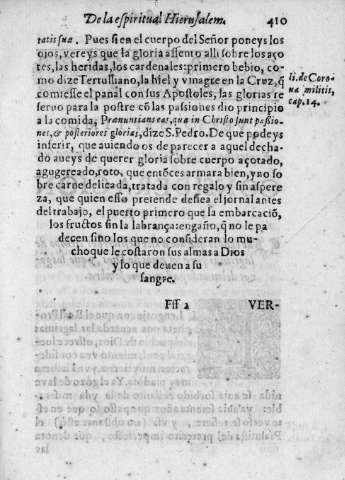 De la espiritual Hierusalem. 410
tatis suæ. Pues si en el cuerpo del Señor poneys los
ojos, vereys que la gloria assento alli sobre los aço
tes, las heridas, los cardenales: primero bebio, co
mo dize Tertussiano, la hiel y vinagre en la Cruz, q̃
comiesse el panal con sus Apostoles, las glorias re
seruo para la postre cõ las passiones dio principio
a la comida, Prænuntians eas, quæ in Christo sunt passio-
nes, & posteriores glorias, dize S. Pedro. De que podeys
inferir, que auiendo os de parecer a aquel decha-
do aueys de querer gloria sobre cuerpo açotado,
agugereado, roto, que entõces armara bien, y no so
bre carne delicada, tratada con regalo y sin aspere
za, que quien esso pretende dessea el jornal antes
del trabajo, el puerto primero que la embarcaciõ,
los fructos sin la labrança: engaño, q̃ no le pa
decen sino los que no consideran lo mu-
cho que le costaron sus almas a Dios
y lo que deuen a su
sangre.
li. de Coro
na militis,
cap. 14.
Fff 2 VER-